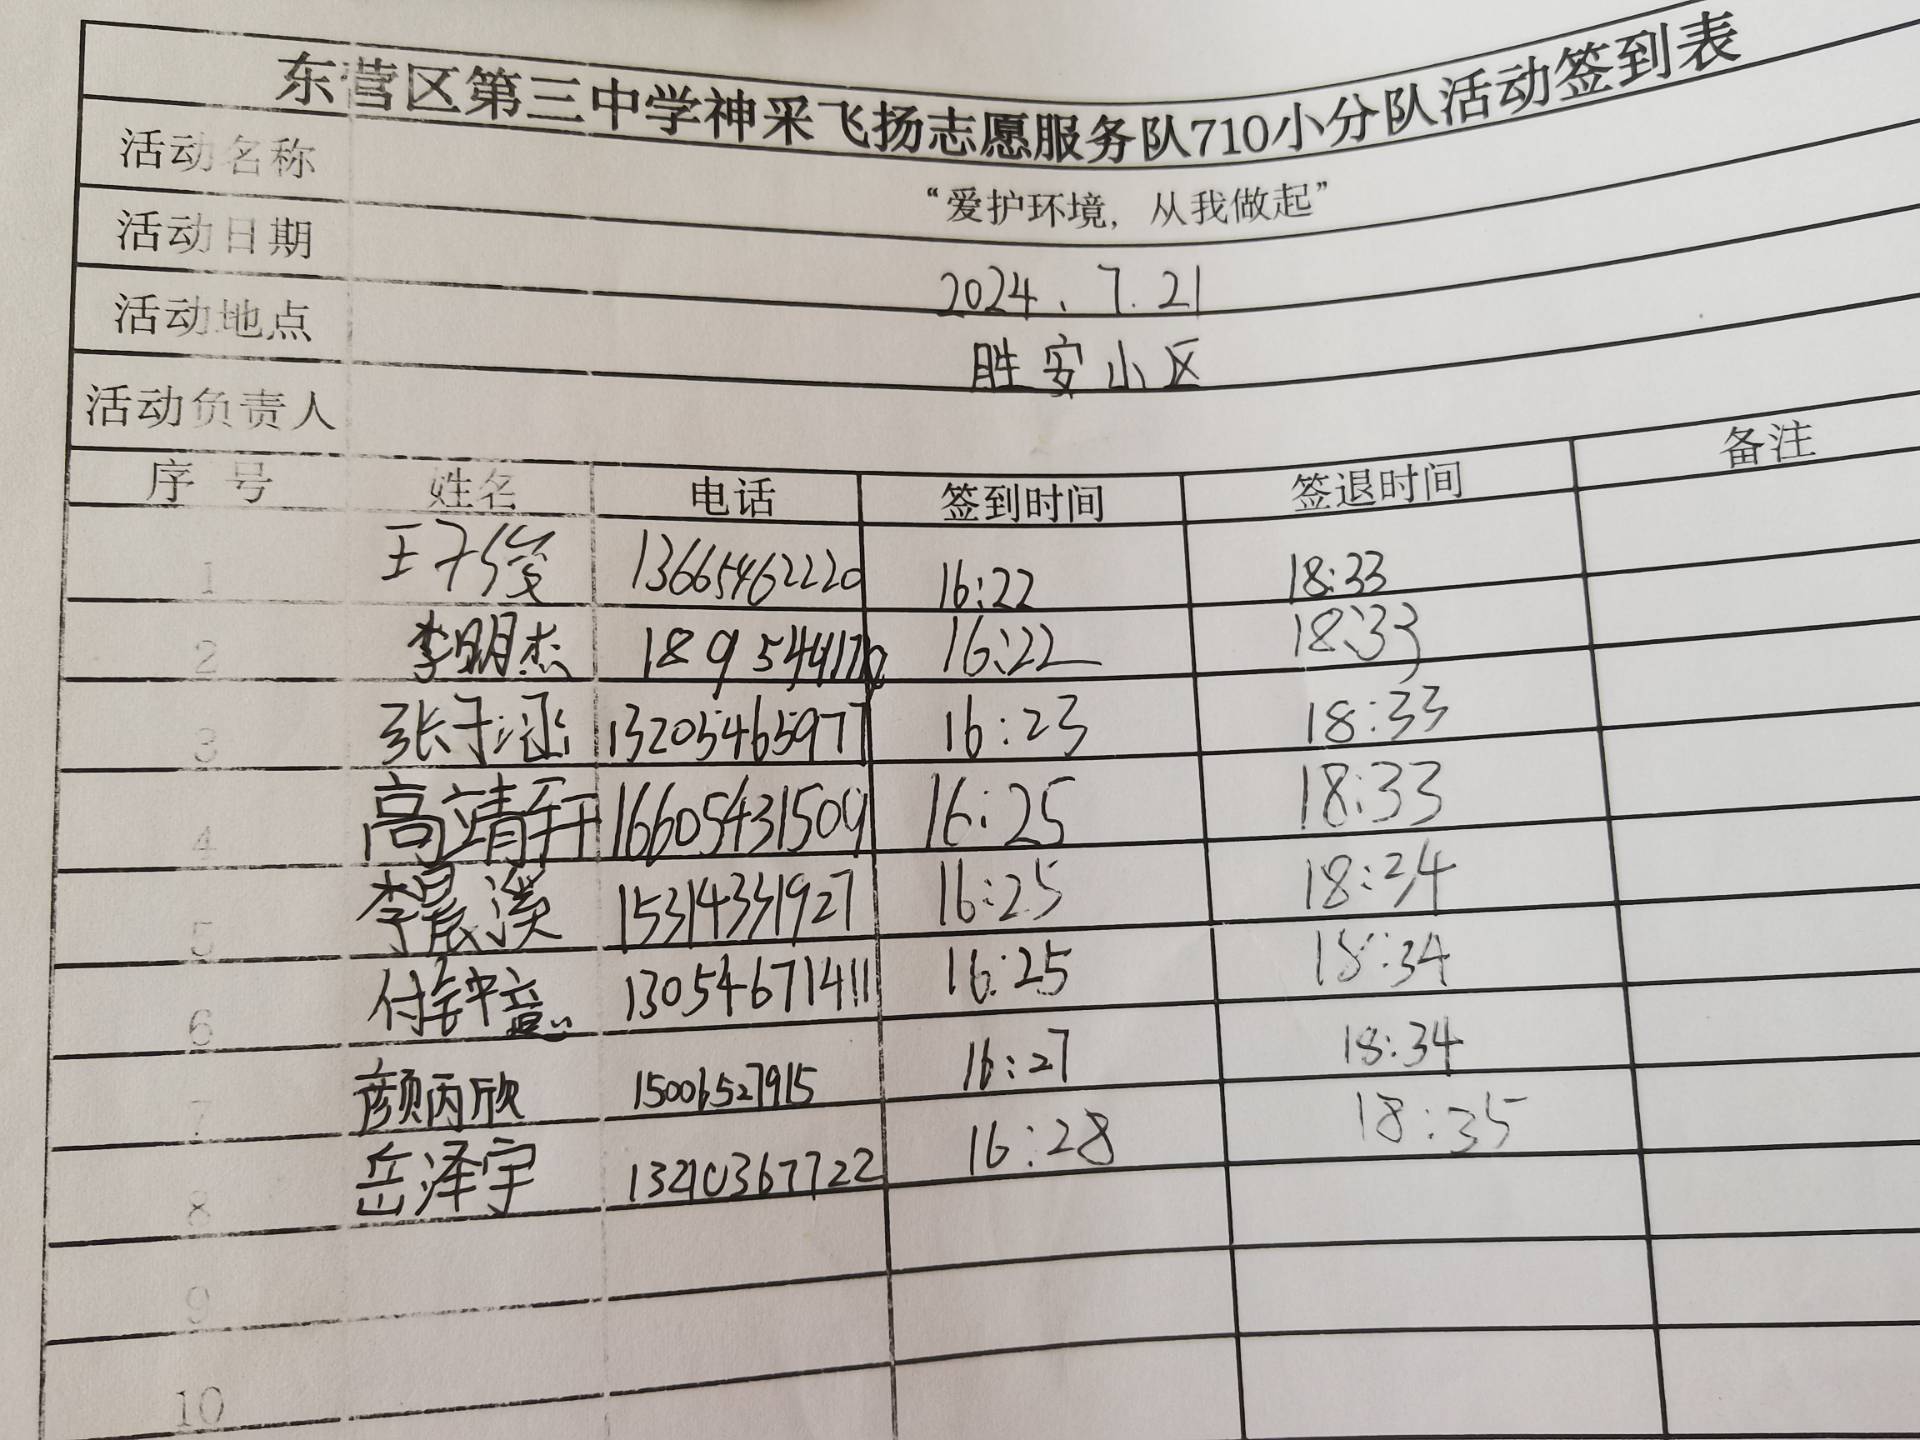 东营区第三中学神采飞扬志愿服务队710小分队活动签到表
活动名称 “爱护环境，从我做起”
活动日期 2024.7.21
活动地点 胜安小区
活动负责人
序号 姓名 电话 签到时间 签退时间 备注
1 王子俊 13665462220 16:22 18:33
2 李明杰 16:22 18:33
3 张子涵 13205465977 16:23 18:33
4 高靖轩 16605431509 16:25 18:33
5 李晨溪 15314331927 16:25 18:34
6 付钟意 13054671411 16:25 18:34
7 颜丙欣 15006527915 16:27 18:34
8 岳泽宇 13210367722 16:28 18:35
9
10